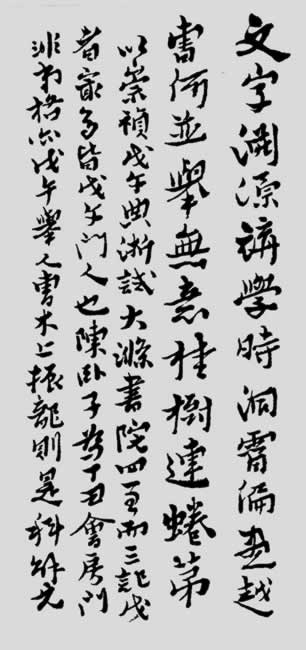 文字淵源講學時洞霄偏越
曹何並舉無意桂樹連蜷第
以崇禎戊午典浙試大滌書院四至而三記戊
者最多皆戊午門人也陳臥子為丁丑會房門
非格亦戊午舉人曹木上振龍則是科解元